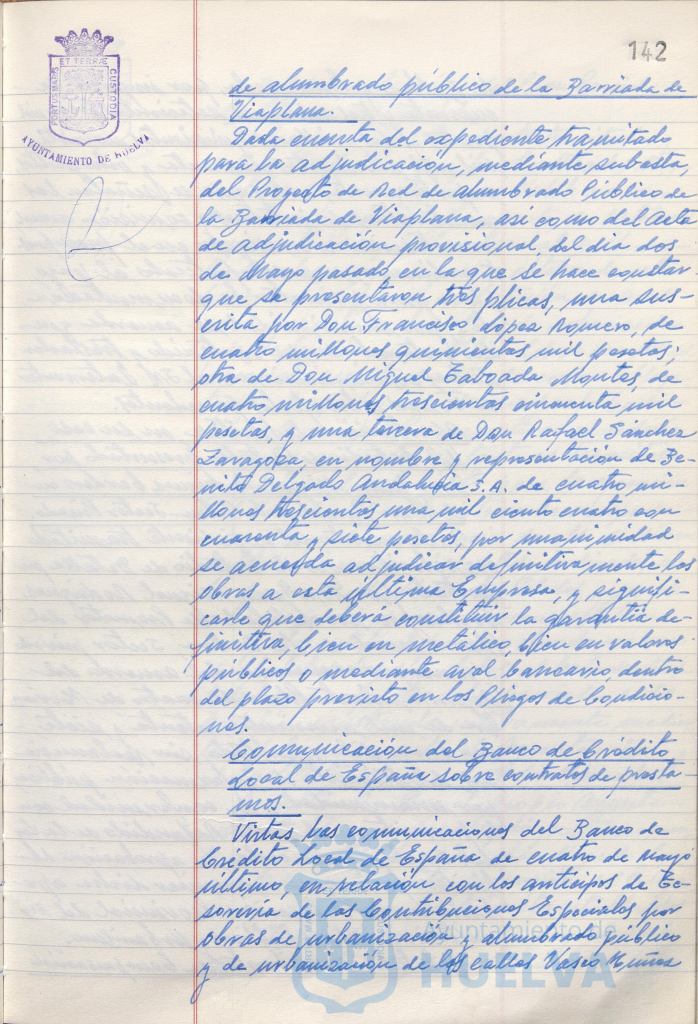 142
PORTUS MARIS ET TERRÆ CUSTODIA
AYUNTAMIENTO DE HUELVA
de alumbrado público de la Barriada de
Viaplana.
Dada cuenta del expediente tramitado
para la adjudicación, mediante subasta,
del Proyecto de Red de alumbrado Público de
la Barriada de Viaplana, así como del Acta
de adjudicación provisional, del dia dos
de Mayo pasado, en la que se hace constar
que se presentaron tres plicas, una sus-
crita por Don Francisco López Romero, de
cuatro millones quinientas mil pesetas;
otra de Don Miguel Taboada Montes, de
cuatro millones trescientas cincuenta mil
pesetas, y una tercera de Don Rafael Sánchez
Zaragoza, en nombre y representación de Be-
nito Delgado Andalucia S.A. de cuatro mi-
llones trescientas una mil ciento cuatro con
cuarenta y siete pesetas, por unanimidad
se acuerda adjudicar definitivamente las
obras a esta última Empresa, y signifi-
carle que deberá constituir la garantia de-
finitiva, bien en metálico, bien en valores
públicos o mediante aval bancario, dentro
del plazo previsto en los Pliegos de Condicio-
nes.
Comunicación del Banco de Crédito
Local de España sobre contratos de presta
mos.
Vistas las comunicaciones del Banco de
Crédito Local de España de cuatro de Mayo
último, en relación con los anticipos de Te-
sorería de las Contribuciones Especiales por
obras de urbanización y alumbrado público
y de urbanización de las calles Vasco Nuñez
Ayuntamiento de
HUELVA